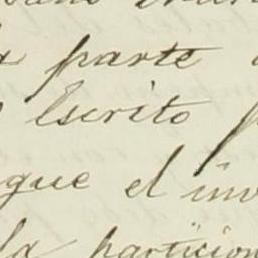 parte
Escrito
que el inv
la particion